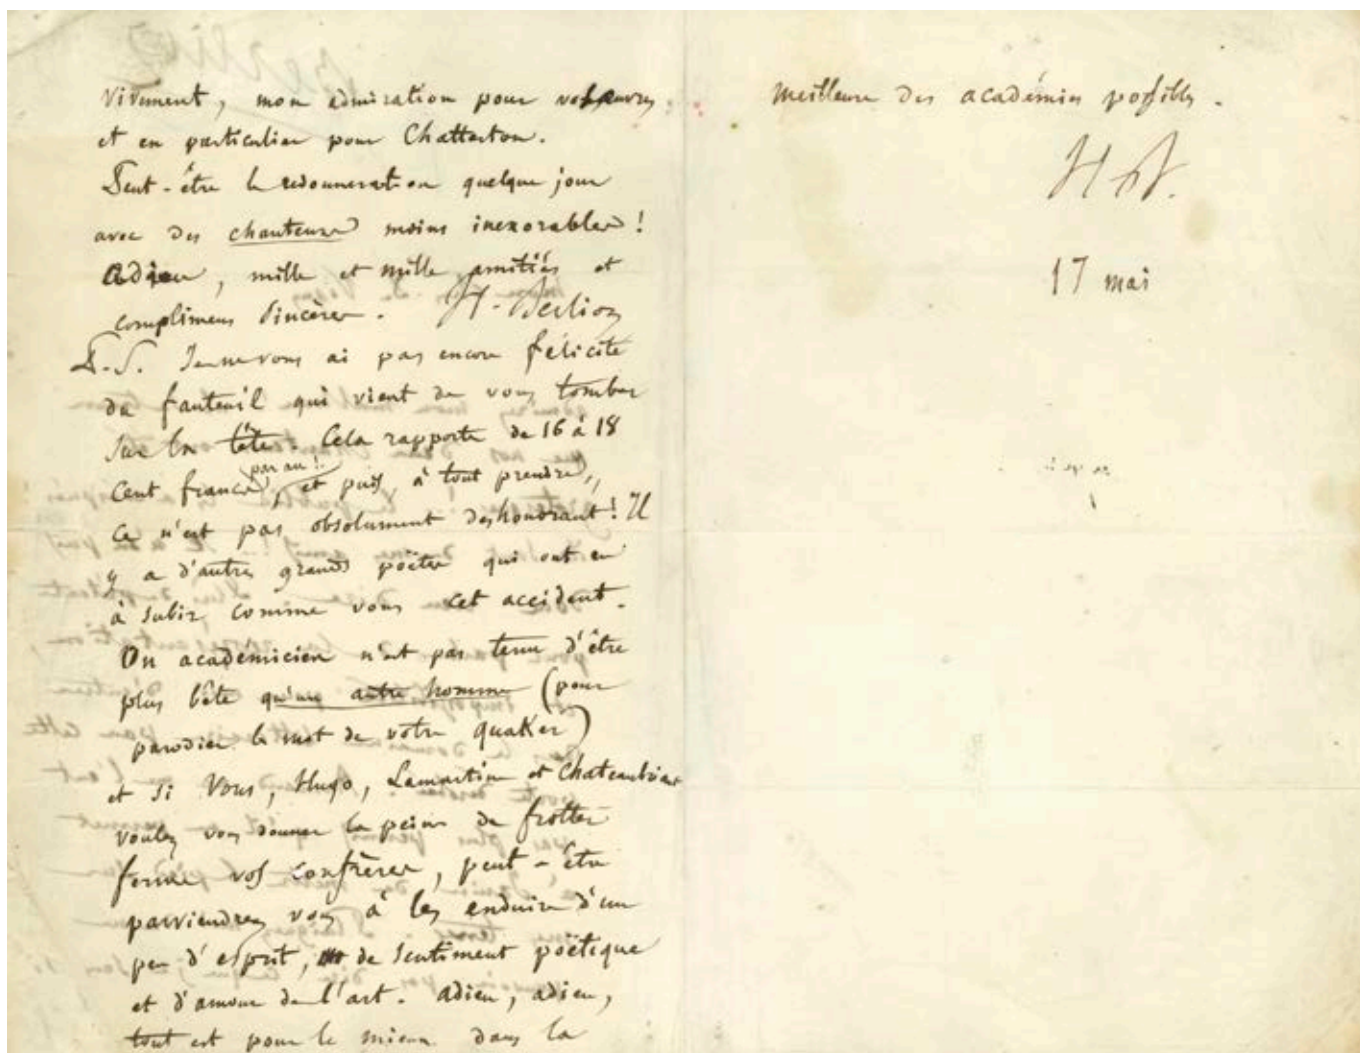 Berlioz
vivement, mon admiration pour vos œuvres
et en particulier pour Chatterton.
Peut-être le redonneration quelque jour
avec des chanteurs moins inexorables!
adieu, mille et mille amitiés et
complimens sincères. H. Berlioz
P.S. Je ne vous ai pas encore félicité
du fauteuil qui vient de vous tomber
sur la tête. Cela rapporte de 16 à 18
cent francs par an!, et puis, à tout prendre,
ce n'est pas absolument deshonorant! Il
y a d'autres grands poëtes qui ont eu
à subir comme vous cet accident.
Un académicien n'est pas tenu d'être
plus bête qu'un autre homme (pour
parodier le mot de votre quaker)
et si vous, Hugo, Lamartine et Chateaubriand
voulez vous donner la peine de frotter
ferme vos confrères, peut-être
parviendrez vous à les enduire d'un
peu d'esprit, de sentiment poëtique
et d'amour de l'art. adieu, adieu,
tout est pour le mieux dans la
meilleure des académies possibles.
H.B.
17 mai